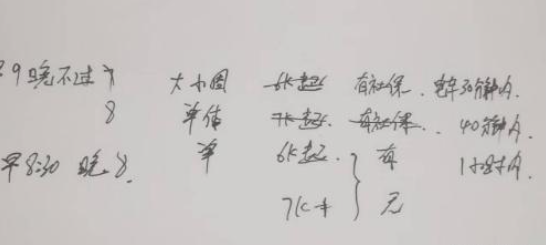 9 晚不过7 大小周 6K起 有社保. 电车30分钟内.
8 单休 7K起 有社保. 40分钟内.
早8:30 晚8. 单 6K起. 有 1小时内.
7K+ 无